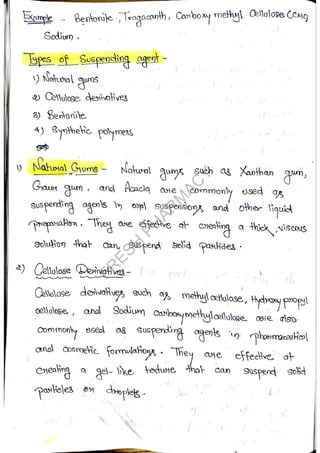 Example - Bentonite, Tragocanth, Carboxy methyl Cellulose CCMG
Sodium.
Types of Suspending agent -
1) Natural gums
2) Cellulose derivatives
3) Bentonite
4) Synthetic polymers
1) Natural Gums - Natural gums such as Xanthan gum,
Guar gum, and Acacia are commonly used as
suspending agents in oral suspensions and other liquid
preparation. They are effective at creating a thick, viscous
solution that can suspend solid particles.
2) Cellulose Derivatives -
Cellulose derivatives such as methyl cellulose, Hydroxy propyl
cellulose, and Sodium Carboxymethylcellulose are also
commonly used as suspending agents in pharmaceutical
and cosmetic formulations. They are effective at
creating a gel-like texture that can suspend solid
particles or droplets.